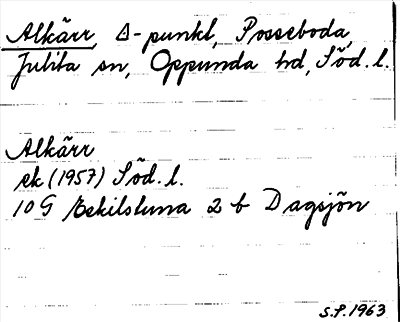 Alkärr, Δ-punkt, Posseboda,
Julita sn, Oppunda hd, Söd. l.
Alkärr
ek (1957) Söd. l.
10 G Eskilstuna 2 b Dagsjön
S.P. 1963